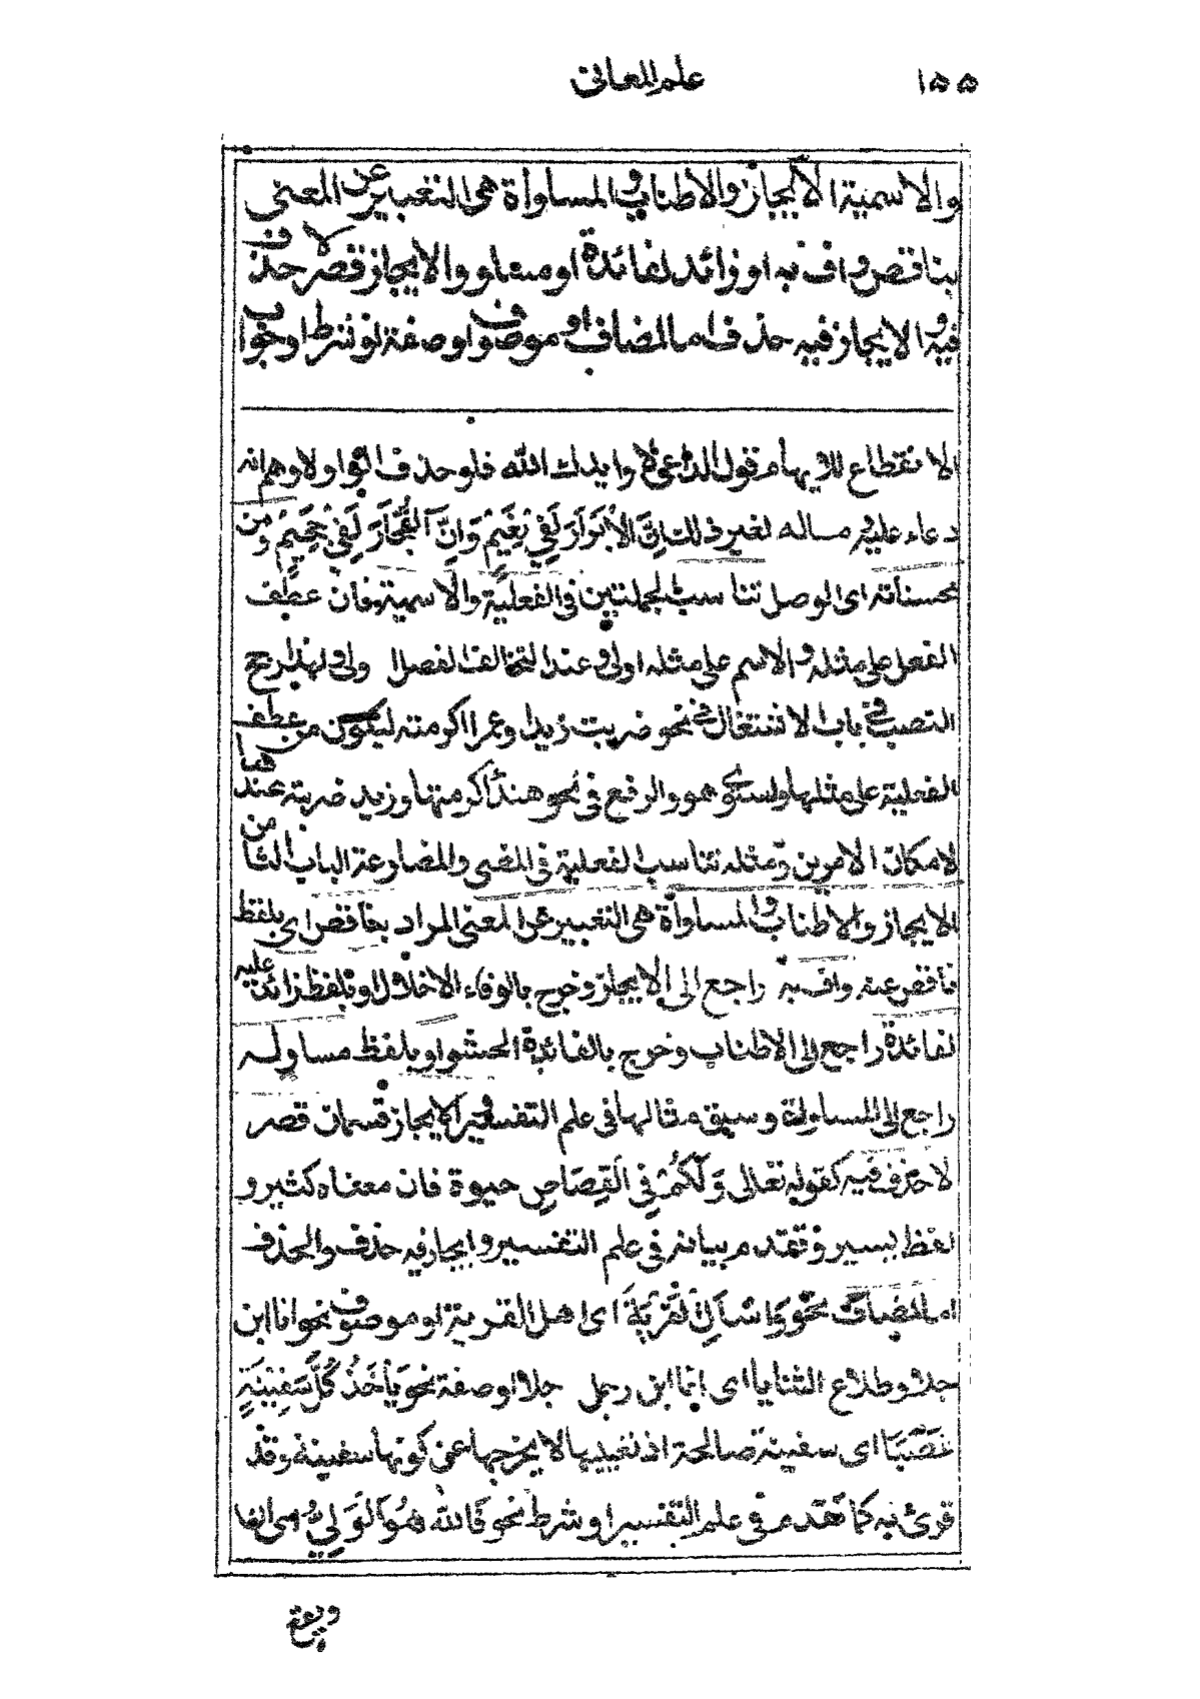 ١٥٥ علم المعاني
والاسمية الايجاز والاطناب والمساواة هى التعبير عن المعنى
بناقص واف به او زائد لفائدة او مساو والايجاز قصر لا حذف
فيه والايجاز فيه حذف اما المضاف او موصوف او صفة او شرط او جواب
الانقطاع للايهام قول الداعى لا وايدك الله فلو حذف الواو لاوهم انه
دعاء عليه مساله لغير ذلك اِنَّ الْاَبْرَارَ لَفِيْ نَعِيْمٍ وَاِنَّ الْفُجَّارَ لَفِيْ جَحِيْمٍ ومن
محسناته اى الوصل تناسب الجملتين فى الفعلية والاسمية فان عطف
الفعل على مثله والاسم على مثله اولى وعند التخالف الفصل اولى ولهذا رجح
النصب فى باب الاشتغال فى نحو ضربت زيدا وعمرا اكرمته ليكون من عطف
الفعلية على مثلها واستوى هو والرفع فى نحو هند اكرمتها وزيد ضربته عندها
لامكان الامرين ومثله تناسب الفعلية فى المضى والمضارعة الباب الثامن
الايجاز والاطناب والمساواة هى التعبير عن المعنى المراد بناقص اى بلفظ
ناقص عنه واف به راجع الى الايجاز وخرج بالوفاء الاخلال او بلفظ زائد عليه
لفائدة راجع الى الاطناب وخرج بالفائدة الحشو او بلفظ مساو له
راجع الى المساواة وسبق مثالها فى علم التفسير والايجاز قسمان قصر
لا حذف فيه كقوله تعالى وَلَكُمْ فِي الْقِصَاصِ حيوة فان معناه كثير و
لفظه يسير وتقدم بيانه فى علم التفسير وايجاز فيه حذف والحذف
اما لمضاف نحو وَاسْاَلِ الْقَرْيَةَ اى اهل القرية او موصوف نحو انا ابن
جلا وطلاع الثنايا اى انا ابن رجل جلا او صفة نحو يَأْخُذُ كُلَّ سَفِيْنَةٍ
غَصْبًا اى سفينة صالحة اذ تعييبها لا يخرجها عن كونها سفينة وقد
قرئ به كما تقدم فى علم التفسير او شرط نحو فَاللّٰه هُوَ الْوَلِيُّ اى ان